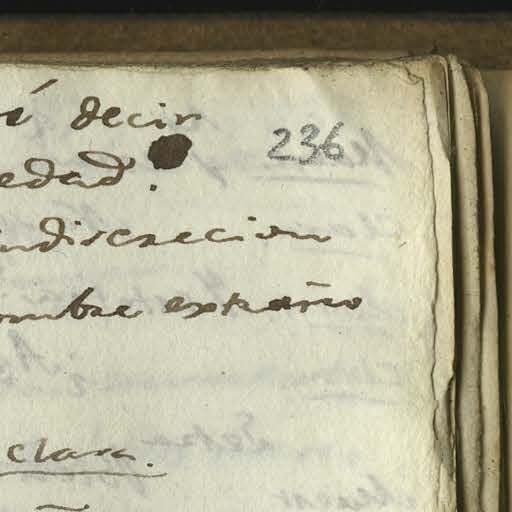 í decir
236
edad.
indiscrecion
ombre extraño
clara.